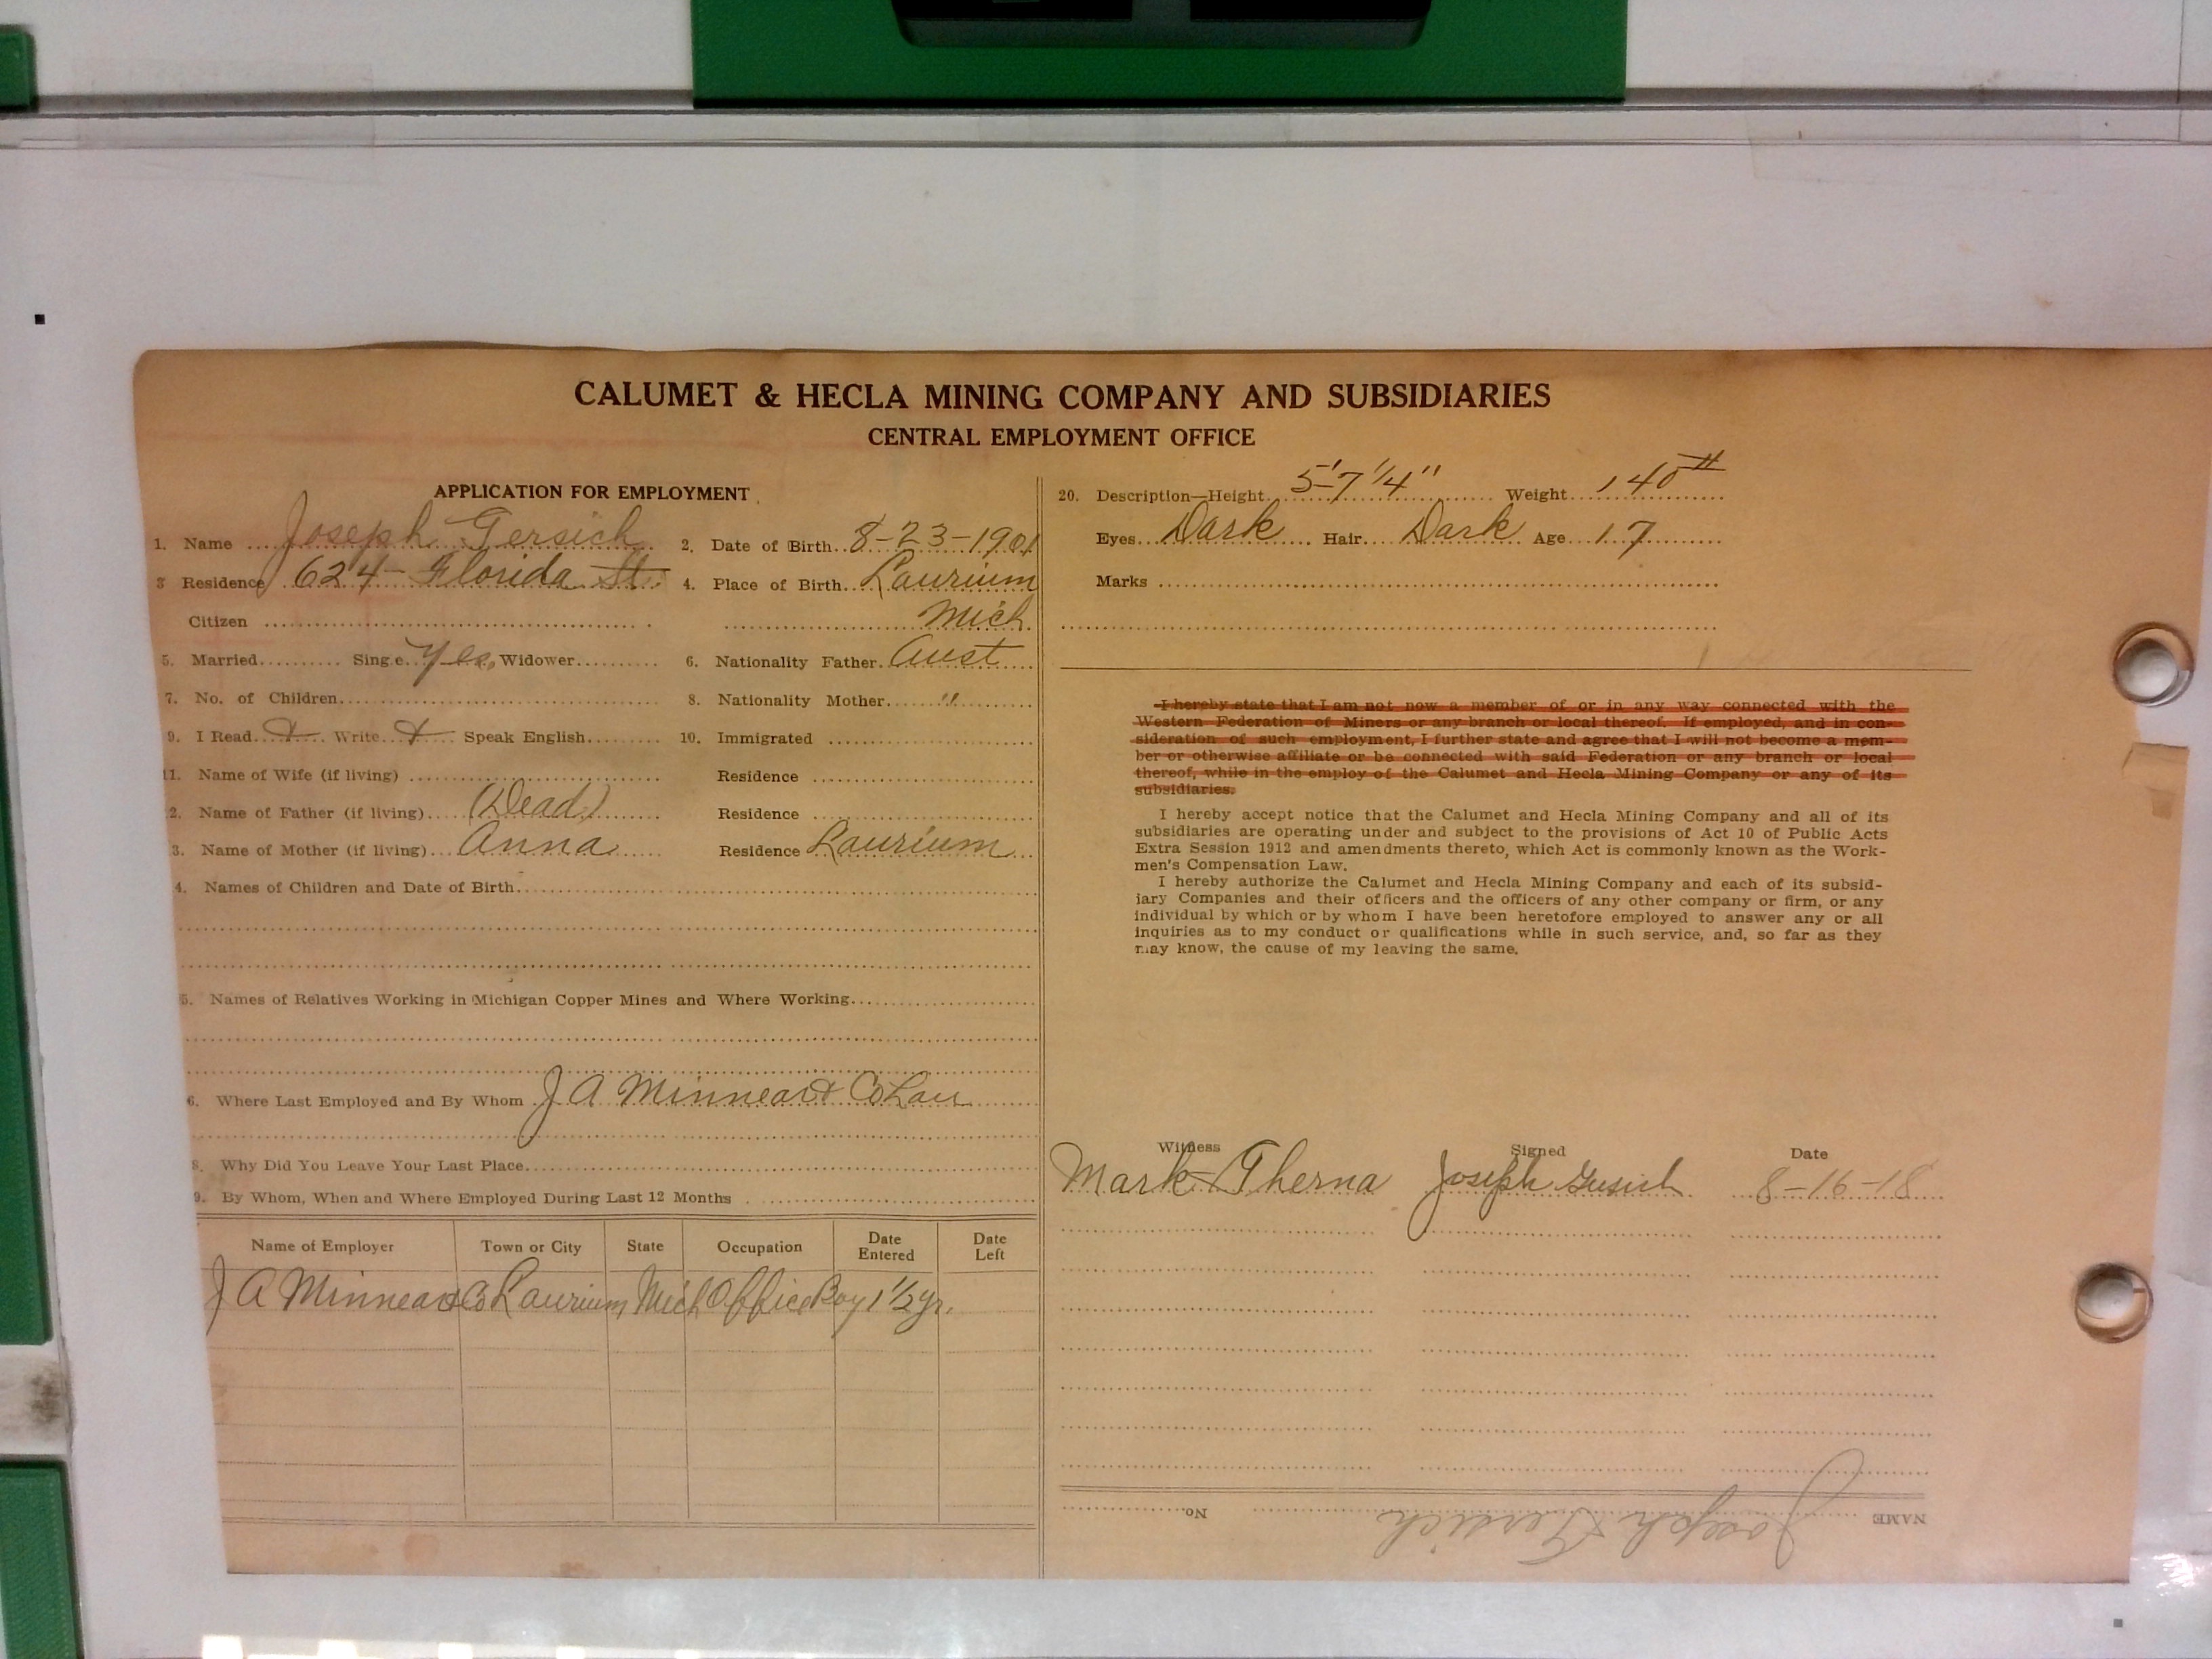 CALUMET & HECLA MINING COMPANY AND SUBSIDIARIES
CENTRAL EMPLOYMENT OFFICE
APPLICATION FOR EMPLOYMENT
1. Name Joseph Gersich 2. Date of Birth 8-23-1901
3 Residence 624 Florida St. 4. Place of Birth Laurium
Citizen Mich
5. Married Single Yes Widower 6. Nationality Father Aust
7. No. of Children 8. Nationality Mother "
9. I Read X Write X Speak English 10. Immigrated
11. Name of Wife (if living) Residence
2. Name of Father (if living) (Dead) Residence
3. Name of Mother (if living) Anna Residence Laurium
4. Names of Children and Date of Birth
5. Names of Relatives Working in Michigan Copper Mines and Where Working
6. Where Last Employed and By Whom J A Minnear & Co Lau
8. Why Did You Leave Your Last Place
9. By Whom, When and Where Employed During Last 12 Months
Name of Employer Town or City State Occupation Date Entered Date Left
J A Minnear & Co Laurium Mich Office Boy 1 1/2 yr.
20. Description—Height 5' 7 1/4" Weight 140 #
Eyes Dark Hair Dark Age 17
Marks
I hereby state that I am not now a member of or in any way connected with the
Western Federation of Miners or any branch or local thereof. If employed, and in con-
sideration of such employment, I further state and agree that I will not become a mem-
ber or otherwise affiliate or be connected with said Federation or any branch or local
thereof, while in the employ of the Calumet and Hecla Mining Company or any of its
subsidiaries.
I hereby accept notice that the Calumet and Hecla Mining Company and all of its
subsidiaries are operating under and subject to the provisions of Act 10 of Public Acts
Extra Session 1912 and amendments thereto, which Act is commonly known as the Work-
men's Compensation Law.
I hereby authorize the Calumet and Hecla Mining Company and each of its subsid-
iary Companies and their officers and the officers of any other company or firm, or any
individual by which or by whom I have been heretofore employed to answer any or all
inquiries as to my conduct or qualifications while in such service, and, so far as they
may know, the cause of my leaving the same.
Witness Signed Date
Mark Therna Joseph Gersich 8-16-18
NAME Joseph Gersich No.